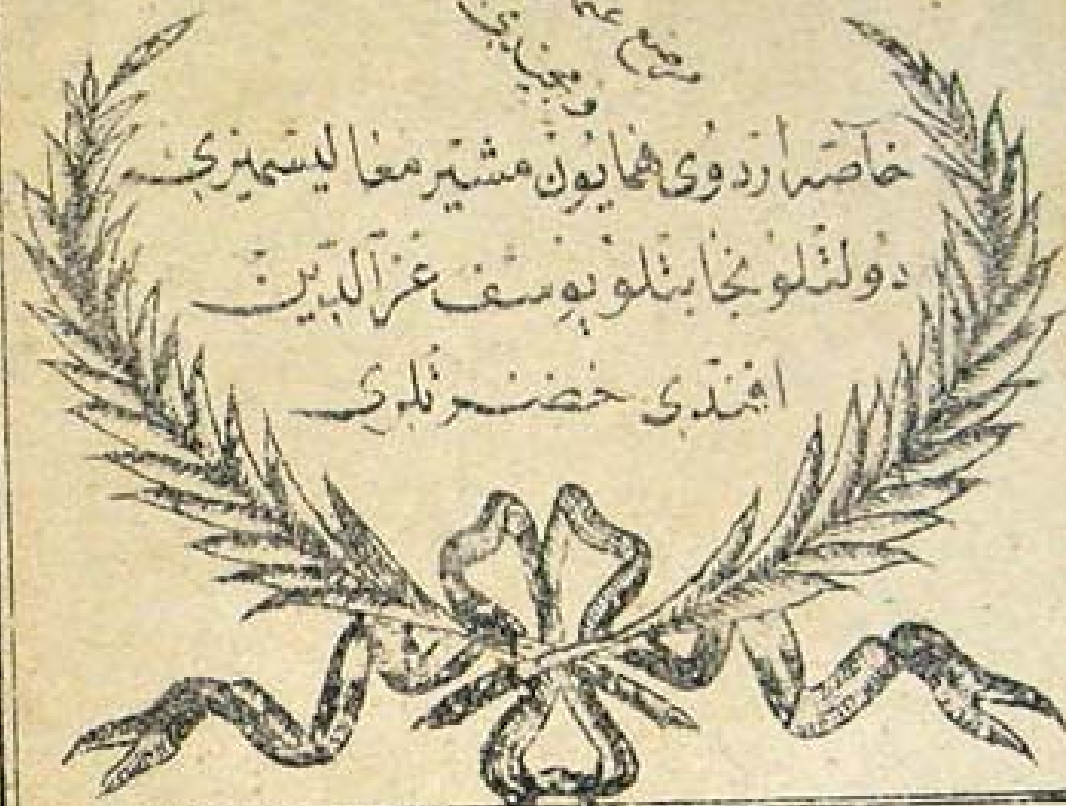 خاصه اردوى همايون مشير معالیسمیری
دولتلو نجابتلو يوسف عز الدين
افندى حضرتلرى